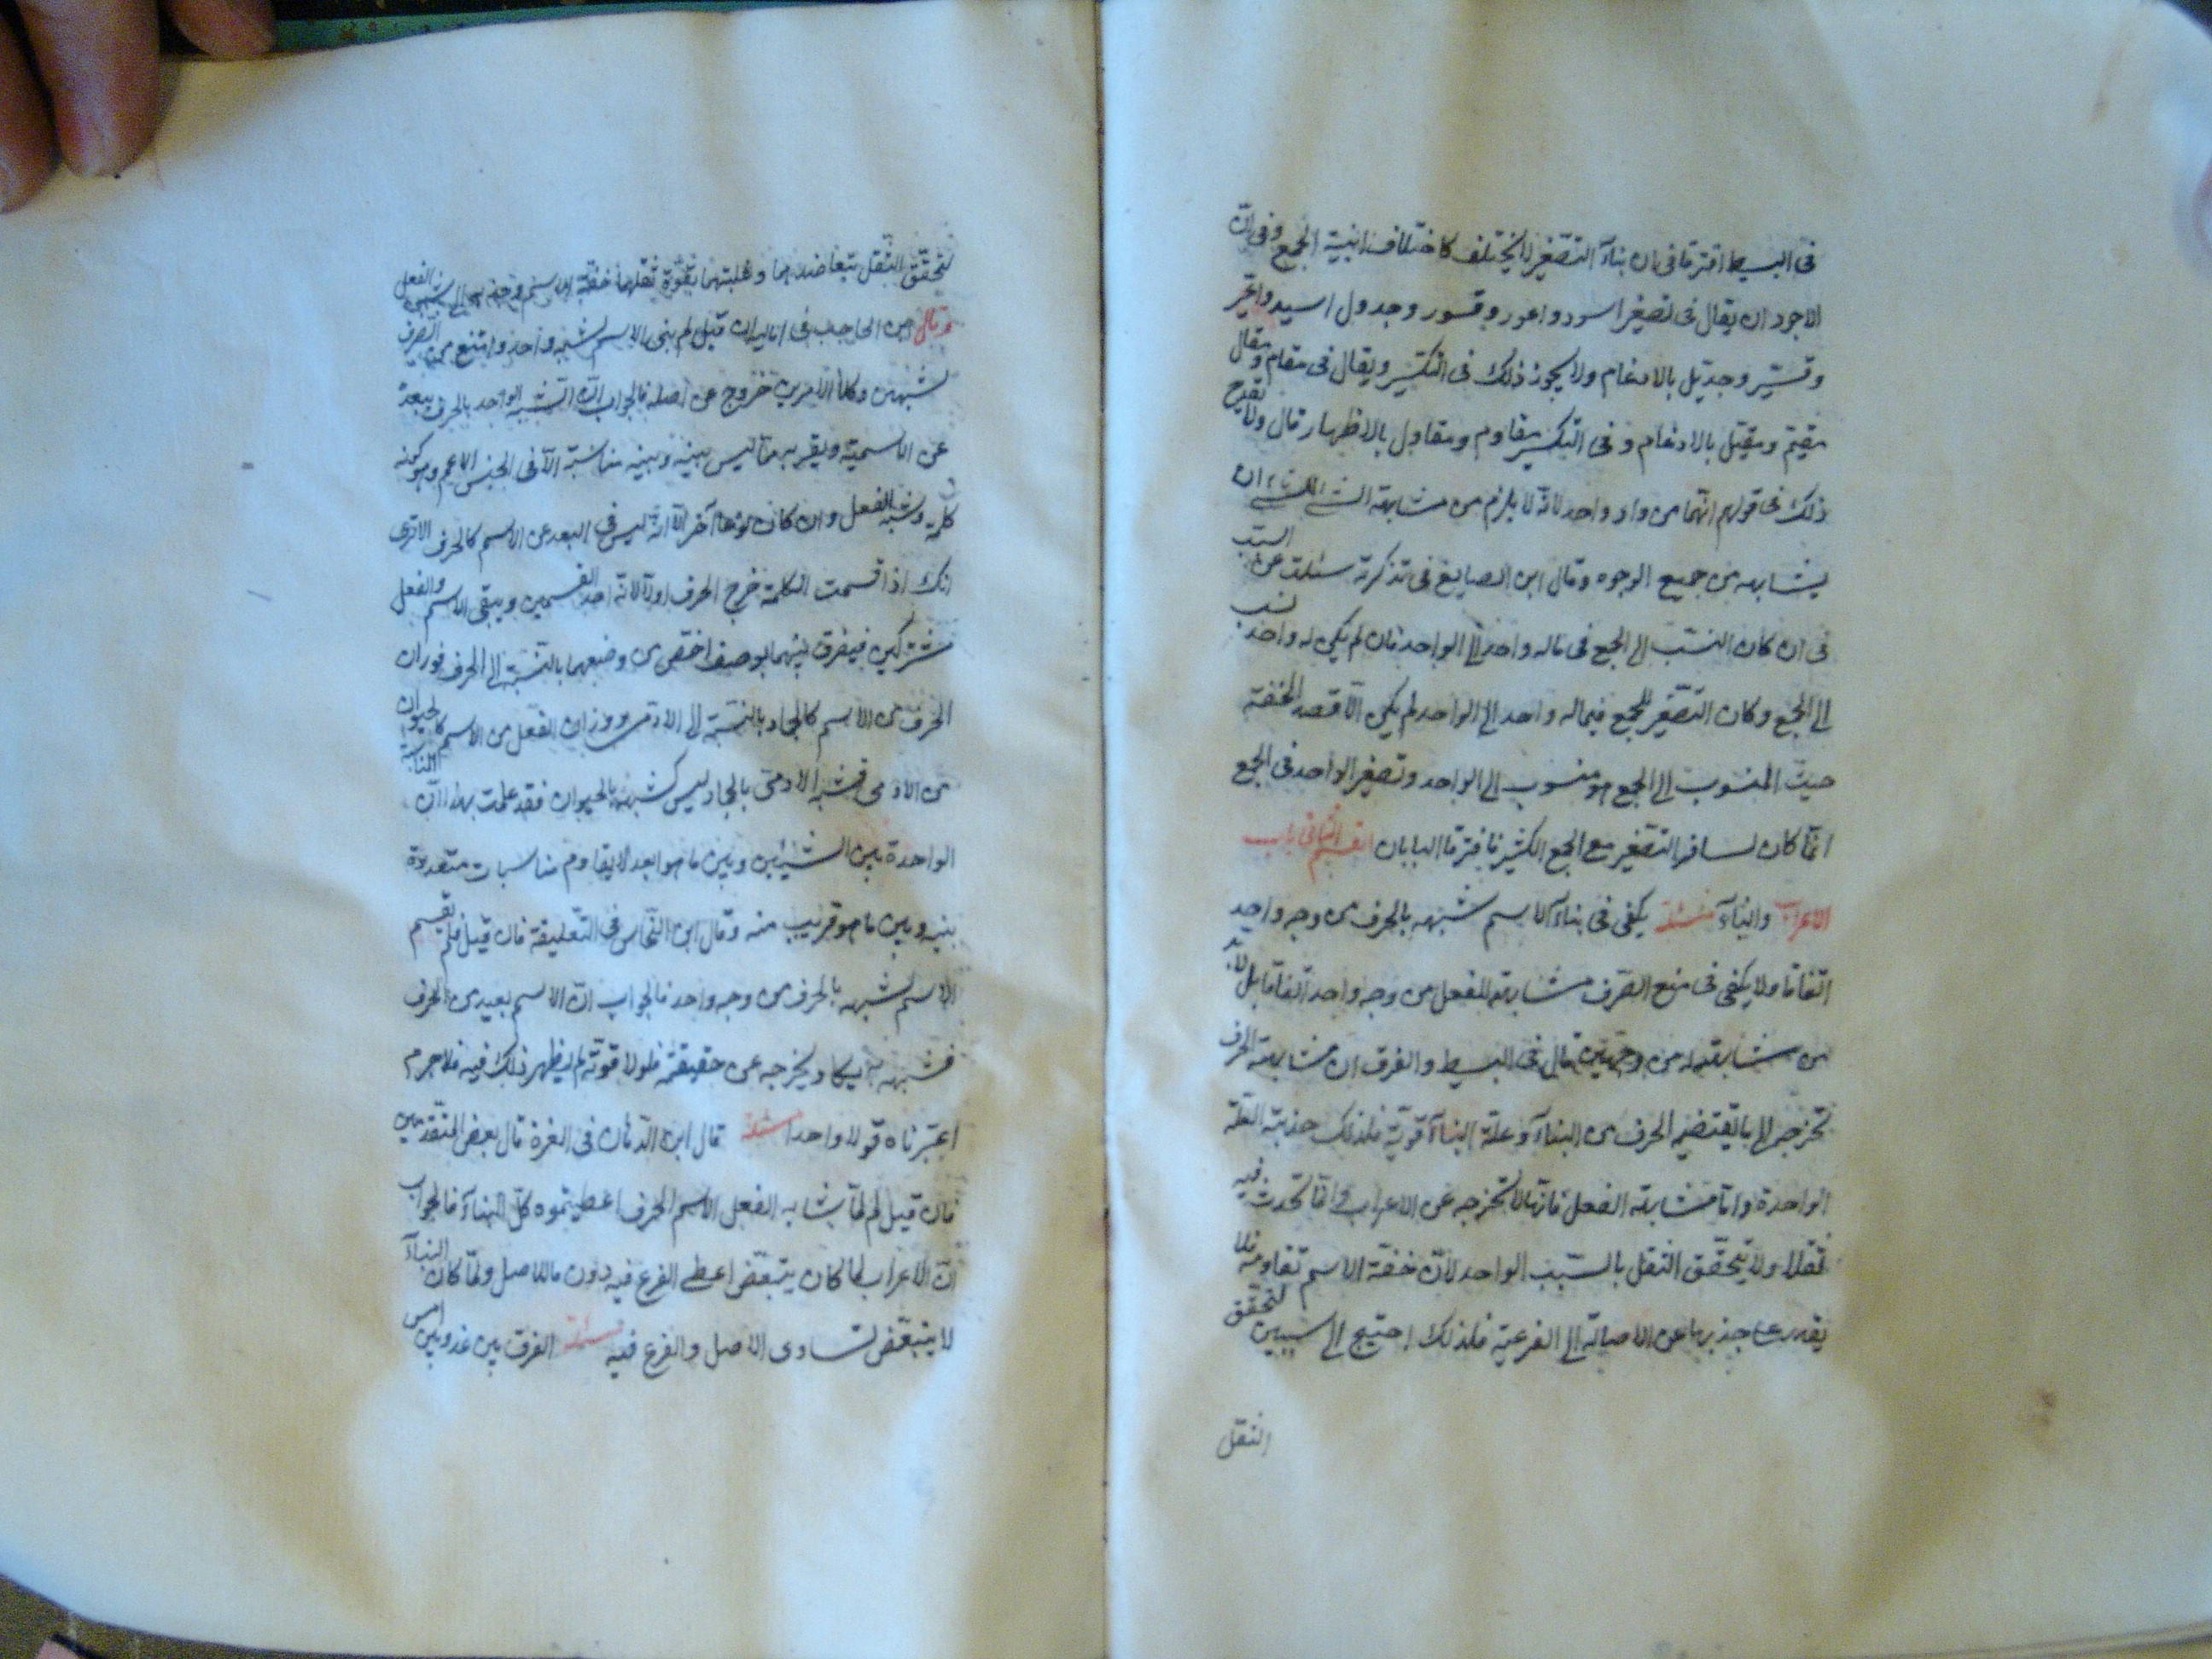 فى البسيط افترقا فى ان بناء التصغير لا يختلف كاختلاف ابنية الجمع وفى ان
الاجود ان يقال فى تصغير اسود واعور وقسور وجدول اسيد واعير
وقسير وجديل بالادغام ولا يجوز ذلك فى التكسير ويقال فى مقام ومقال
مقيم ومقيل بالادغام وفى التكسير مقاوم ومقاول بالاظهار قال ولا يقدح
ذلك فى قولهم انهما من واد واحد لانه لا يلزم من مشابهة الشئ للشئ ان
يشابهه من جميع الوجوه وقال ابن الصايغ فى تذكرته سئلت عن السبب
فى ان كان النسب الى الجمع فى ماله واحد الى الواحد فان لم يكن له واحد نسب
الى الجمع وكان التصغير للجمع فيما له واحد الى الواحد لم يكن الا قصد الخفة
حيث المنسوب الى الجمع هو منسوب الى الواحد وتصغير الواحد فى الجمع
انما كان لتنافر التصغير مع الجمع الكثير فافترقا البابان القسم الثانى باب
الاعراب والبناء مسئلة يكفى فى بناء الاسم شبهه بالحرف من وجه واحد
اتفاقا ولا يكفى فى منع الصرف مشابهته للفعل من وجه واحد اتفاقا بل لا بد
من مشابهته له من وجهين قال فى البسيط والفرق ان مشابهة الحرف
تخرجه الى ما يقتضيه الحرف من البناء وعلة البناء قوية فلذلك جذبته العلة
الواحدة واما مشابهة الفعل فانها لا تخرجه عن الاعراب وانما تحدث فيه
ثقلا ولا يتحقق الثقل بالسبب الواحد لان خفة الاسم تقاومه فلا
يقدر على جذبها عن الاصالة الى الفرعية فلذلك احتيج الى سببين لتحقق
الثقل
لتحقق الثقل بتعاضدهما وغلبتهما بقوة ثقلهما خفة الاسم وجذبه الى شبه الفعل
وقال ابن الحاجب فى اماليه ان قيل لم بنى الاسم لشبه واحد وامتنع من الصرف
لشبهين وكلا الامرين خروج عن اصله فالجواب ان الشبه الواحد بالحرف يبعده
عن الاسمية ويقربه مما ليس بينه وبينه مناسبة الا فى الجنس الاعم وهو كونه
كلمة وشبه الفعل وان كان نوعا آخر الا انه ليس فى البعد عن الاسم كالحرف الا ترى
انك اذا قسمت الكلمة خرج الحرف اولا لانه احد القسمين ويبقى الاسم والفعل
مشتركين فيفرق بينهما بوصف اخص من وضعهما بالنسبة الى الحرف فوزان
الحرف من الاسم كالجماد بالنسبة الى الادمى ووزان الفعل من الاسم كالحيوان
من الادمى فشبه الادمى بالجماد ليس كشبهه بالحيوان فقد علمت بهذا ان المناسبة
الواحدة بين الشيئين وبين ما هو ابعد لا يقاوم مناسبات متعددة
بينه وبين ما هو قريب منه وقال ابن النحاس فى التعليقة فان قيل فلم يقسم
الاسم لشبهه بالحرف من وجه واحد فالجواب ان الاسم بعيد من الحرف
فشبهه به يكاد يخرجه عن حقيقته فلولا قوته لم يظهر ذلك فيه فلا جرم
اعتبرناه قولا واحدا مسئلة قال ابن الدهان فى الغرة قال بعض المتقدمين
فان قيل لم لما شابه الفعل الاسم الحرف اعطيتموه كل البناء فالجواب
ان الاعراب لما كان يتبعض اعطى الفرع فيه دون ما للاصل ولما كان البناء
لا يتبعض لتساوى الاصل والفرع فيه مسئلة الفرق بين غد وبين امس